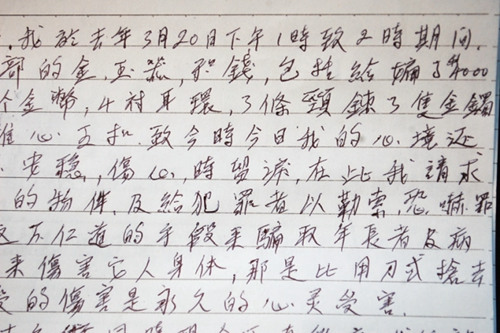 .我於去年3月20日下午1時致2時期間.
部的金,玉器,积錢,包括給嫲了$4000
个金幣,4对耳環,3條頸鍊3隻金鐲
心玉扣.致今時今日我的心境还
安穏,傷心,時留淚,在此我請求
的物件.及給犯罪者以勒索,恐嚇罪
不仁道的手段来騙取年長者及病
来傷害它人身体,那是比用刀或搶去
受的傷害是永久的心灵受害.